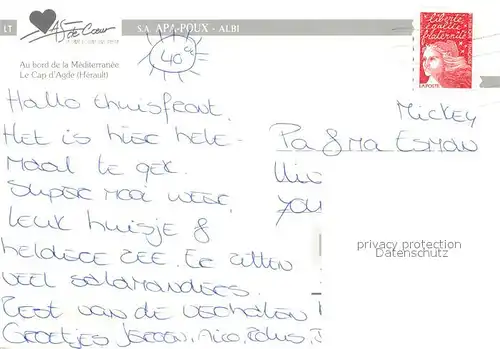 LT
As de Cœur
S.A. APA-POUX - ALBI
Au bord de la Méditerranée
Le Cap d'Agde (Hérault)
40°
liberté
égalité
fraternité
LA POSTE
Hallo thuisfront.
Het is hier hele-
maal te gek.
Super mooi weer,
leuk huisje &
heldere zee. Er zitten
veel salamanders.
Rest van de verhalen
Groetjes Jeroen, Nico,
Mickey
Pa & Ma ESMAN
privacy protection
Datenschutz